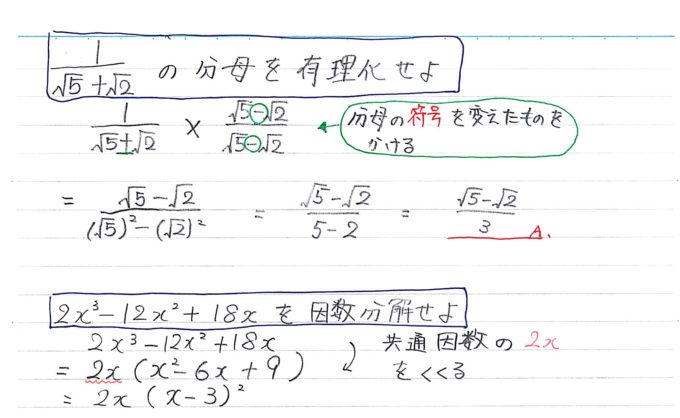 1/(√5+√2) の分母を有理化せよ
1/(√5+√2) × (√5-√2)/(√5-√2) ← 分母の符号を変えたものを
かける
= (√5-√2)/((√5)²-(√2)²) = (√5-√2)/(5-2) = (√5-√2)/3 A.
2x³-12x²+18x を因数分解せよ
2x³-12x²+18x 共通因数の 2x
= 2x (x²-6x+9) をくくる
= 2x (x-3)²